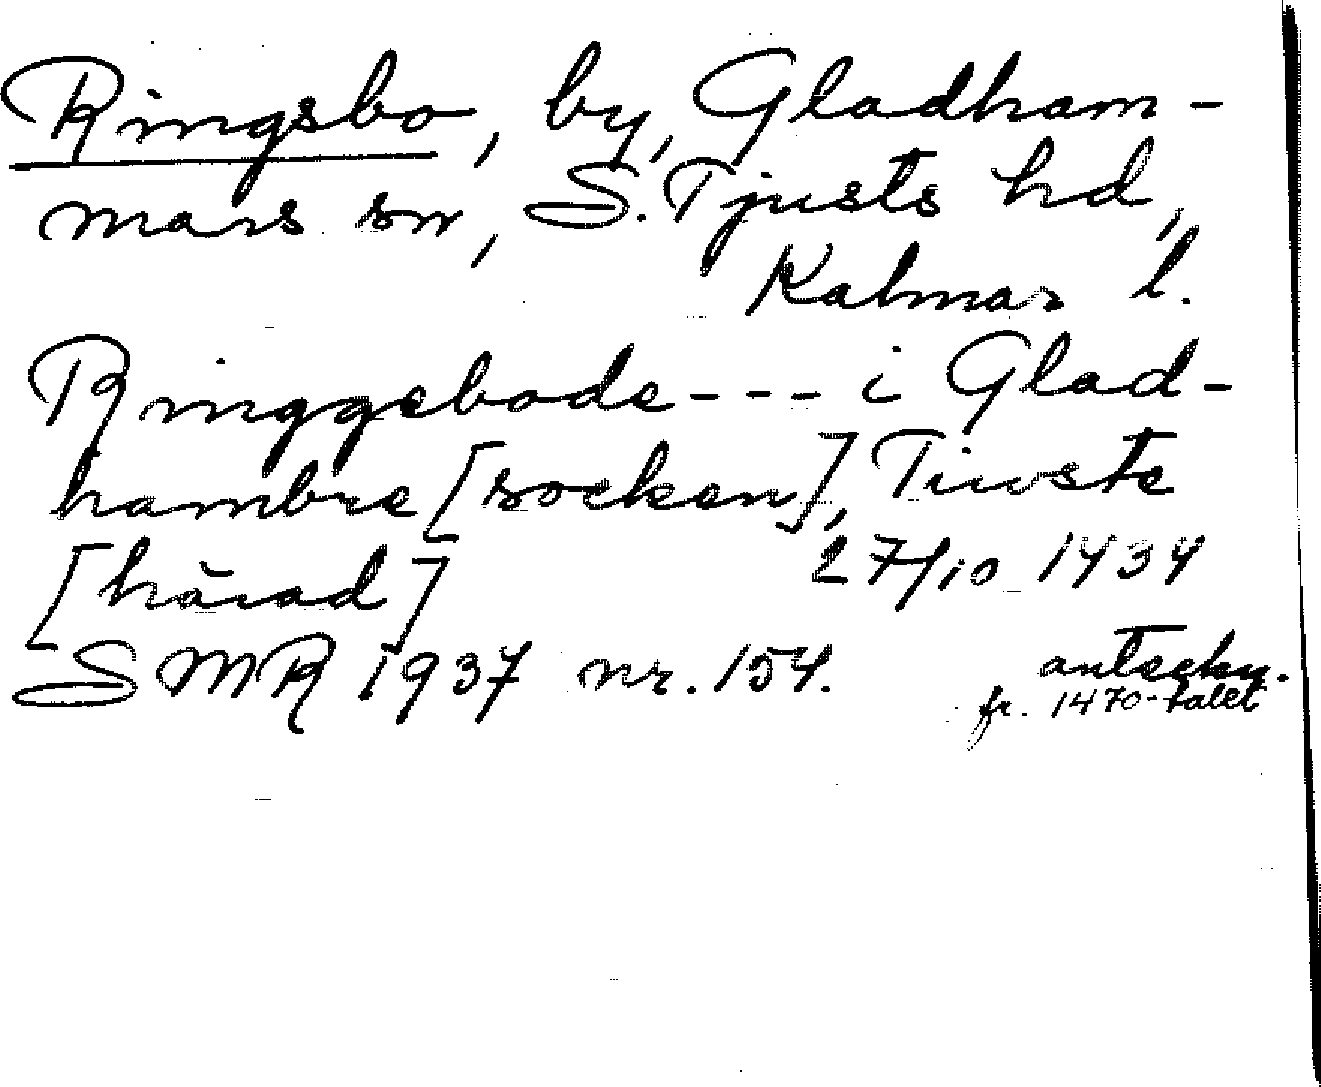 Ringsbo, by, Gladham-
mars sn, S. Tjusts hd,
Kalmar l.
Ringgebode --- i Glad-
hambre [socken], Tiwste
[härad] 27/10 1434
SMR 1937 nr. 154. anteckn.
fr. 1470-talet